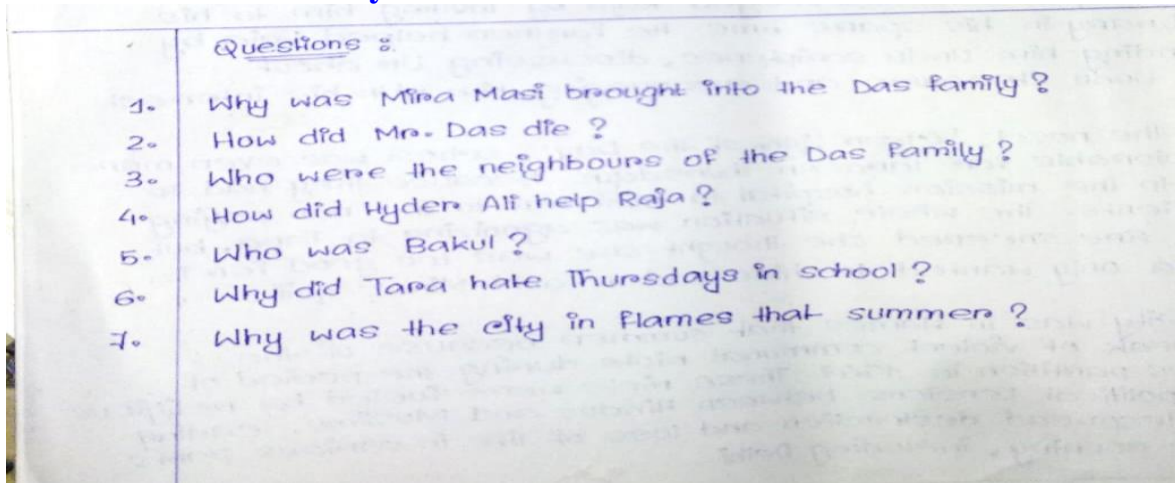 Questions :
1. Why was Mira Masi brought into the Das family ?
2. How did Mr. Das die ?
3. Who were the neighbours of the Das family ?
4. How did Hyder Ali help Raja ?
5. Who was Bakul ?
6. Why did Tara hate Thursdays in school ?
7. Why was the city in flames that summer ?